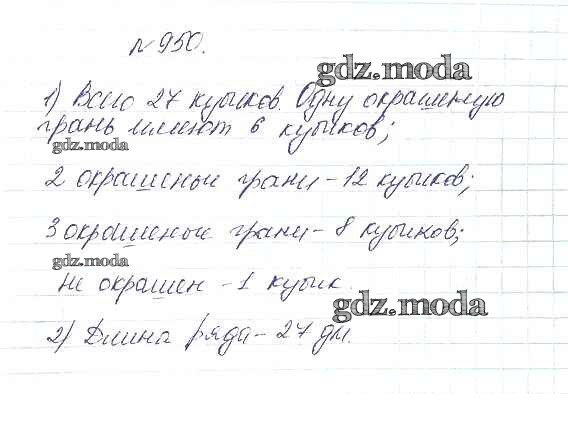 №950.
gdz.moda
1) Всего 27 кубиков. Одну окрашенную
грань имеют 6 кубиков;
gdz.moda
2 окрашеные грани - 12 кубиков;
3 окрашеные грани - 8 кубиков;
gdz.moda
Не окрашен - 1 кубик.
gdz.moda
2) Длина ряда - 27 дм.